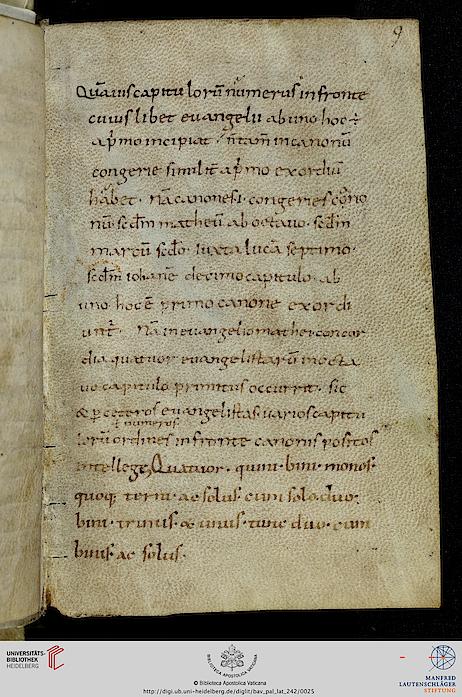 9
Quāuis capitulorū numerus in fronte
cuiuslibet euangelii ab uno hoc ē
a pͥmo incipiat / n̄ tam̄ in canonū
congerie similit̄ a pͥmo exordiū
habet · nā canones i · congeries cͣno
nū · scd̄m matheū ab octauo · scd̄m
marcū scdo · iuxta lucā septimo ·
scd̄m iohanē decimo capitulo · ab
uno · hoc ē primo canone exordi
unt̄ · Nā in euangelio mathei concor
dia quatuor euangelistarū in octa
uo capitulo primitus occurrit · sic
& ꝑ ceteros euangelistas · uarios capitu
numeros
lorū ordines in fronte canonis positos
intellege, Quatuor · quini · bini · monos ·
quoq; terni · ac solus · cum solo duo ·
bini · trinus & unus · tunc duo · cum
binis · ac solus ·
UNIVERSITÄTS-
BIBLIOTHEK
HEIDELBERG
© Biblioteca Apostolica Vaticana
http://digi.ub.uni-heidelberg.de/diglit/bav_pal_lat_242/0025
MANFRED
LAUTENSCHLÄGER
STIFTUNG